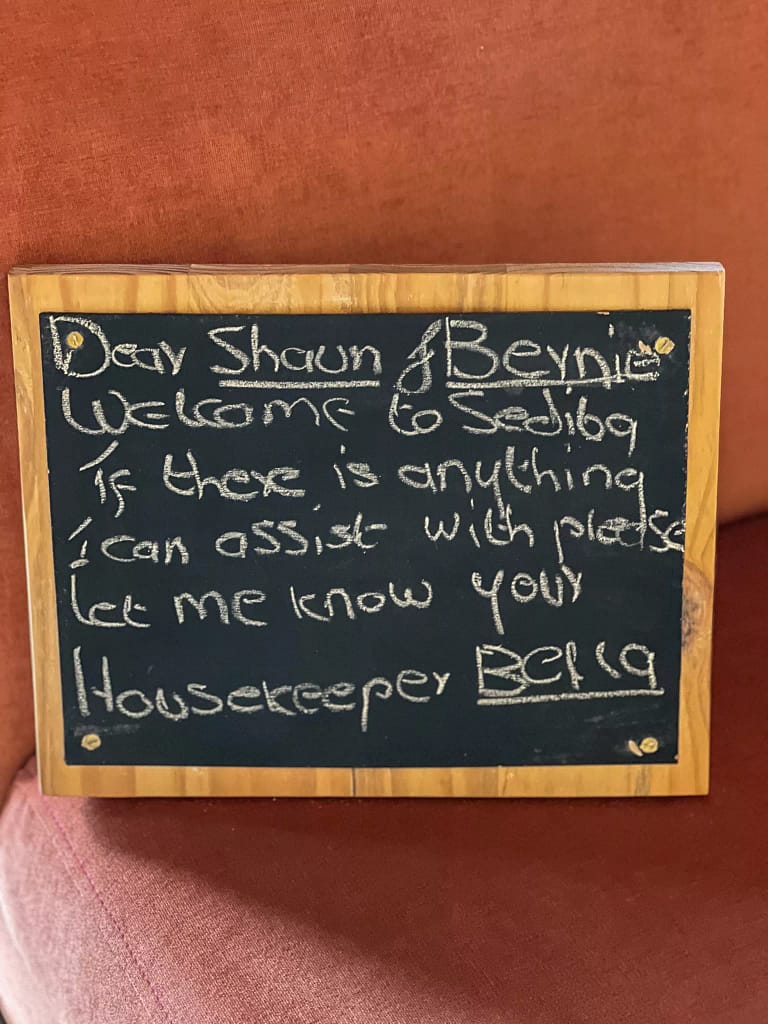 Dear Shaun & Bernie
Welcome to Sediba
if there is anything
i can assist with please
let me know your
Housekeeper